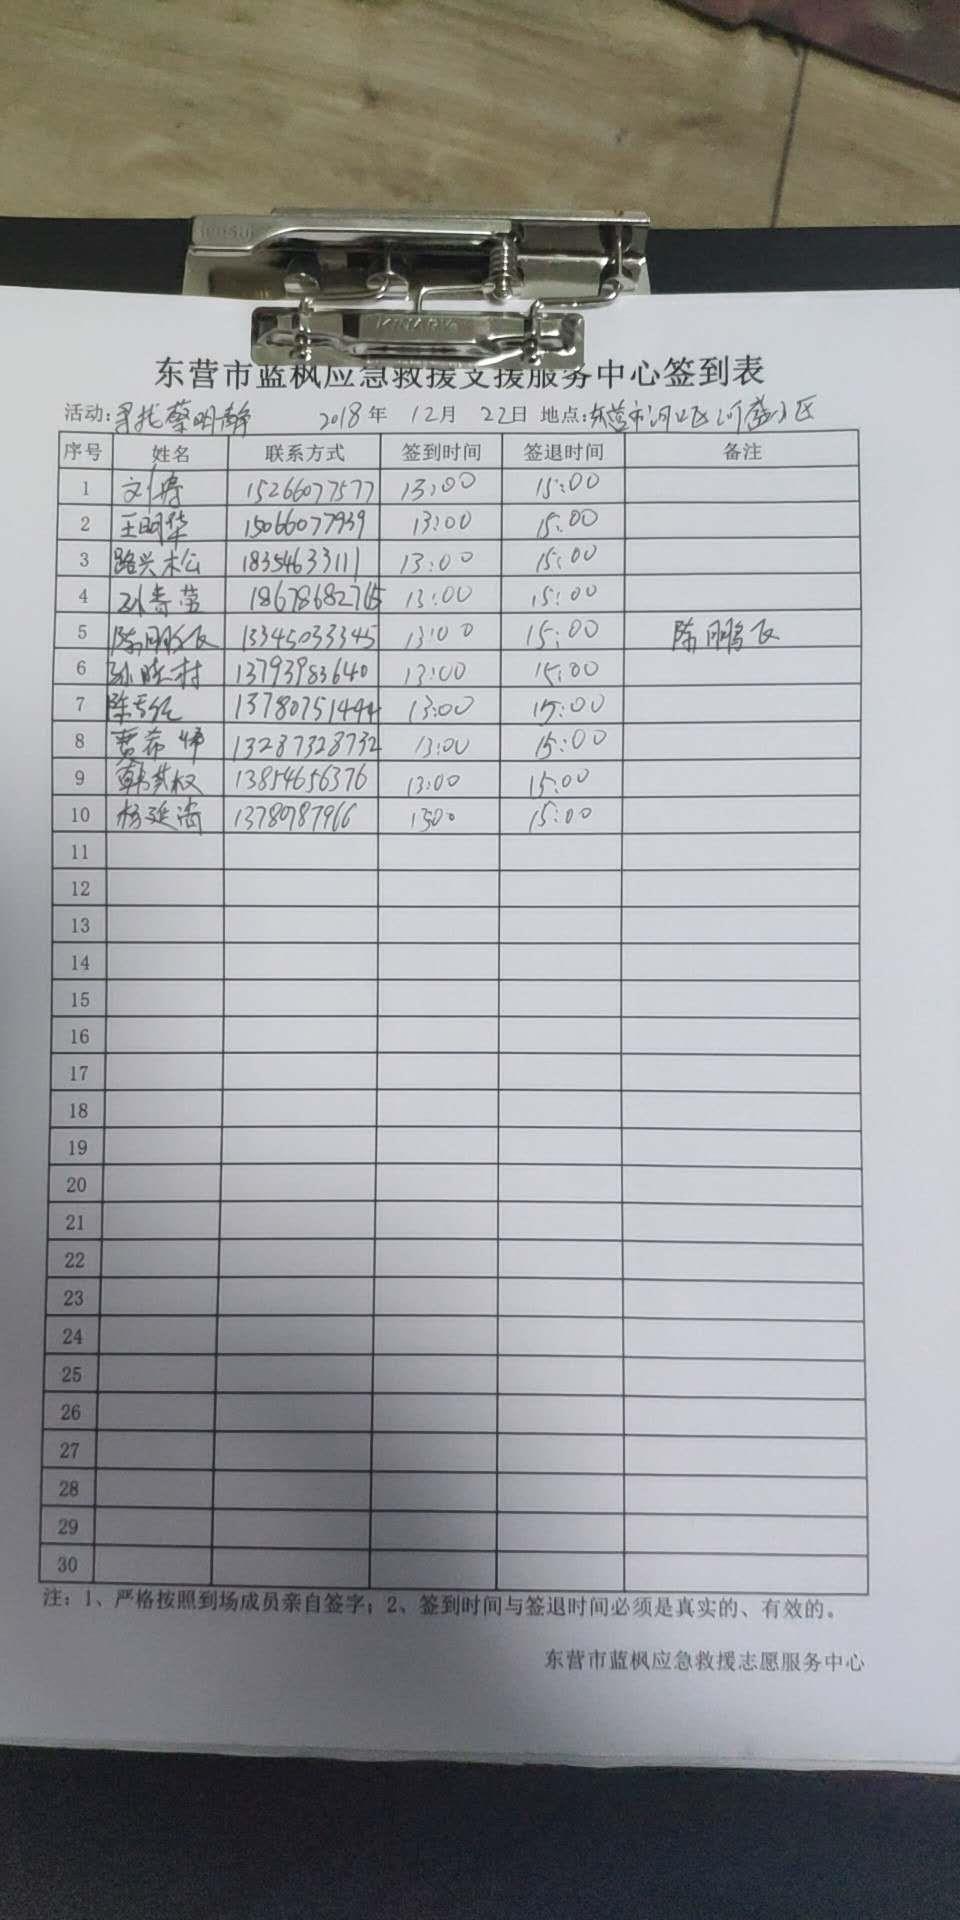 东营市蓝枫应急救援支援服务中心签到表
活动:寻找蔡明静 2018年 12月 22日 地点:东营市河口区河盛小区
序号 姓名 联系方式 签到时间 签退时间 备注
1 刘涛 15266077577 13:00 15:00
2 王明华 15066077939 13:00 15:00
3 路兴松 18354633111 13:00 15:00
4 刘青营 18678682765 13:00 15:00
5 陈鹏飞 13345033345 13:00 15:00 陈鹏飞
6 孙晓村 13793983640 13:00 15:00
7 陈 13780751444 13:00 15:00
8 贾希 13287328732 13:00 15:00
9 韩其权 13854656376 13:00 15:00
10 杨延涛 13780787966 1300 15:00
11
12
13
14
15
16
17
18
19
20
21
22
23
24
25
26
27
28
29
30
注:1、严格按照到场成员亲自签字;2、签到时间与签退时间必须是真实的、有效的。
东营市蓝枫应急救援志愿服务中心